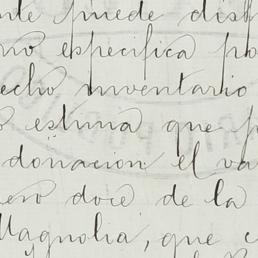 nte puede disp
mo especifica po
echo inventario
estima que p
donacion el va
ero doce de la
Magnolia, que c